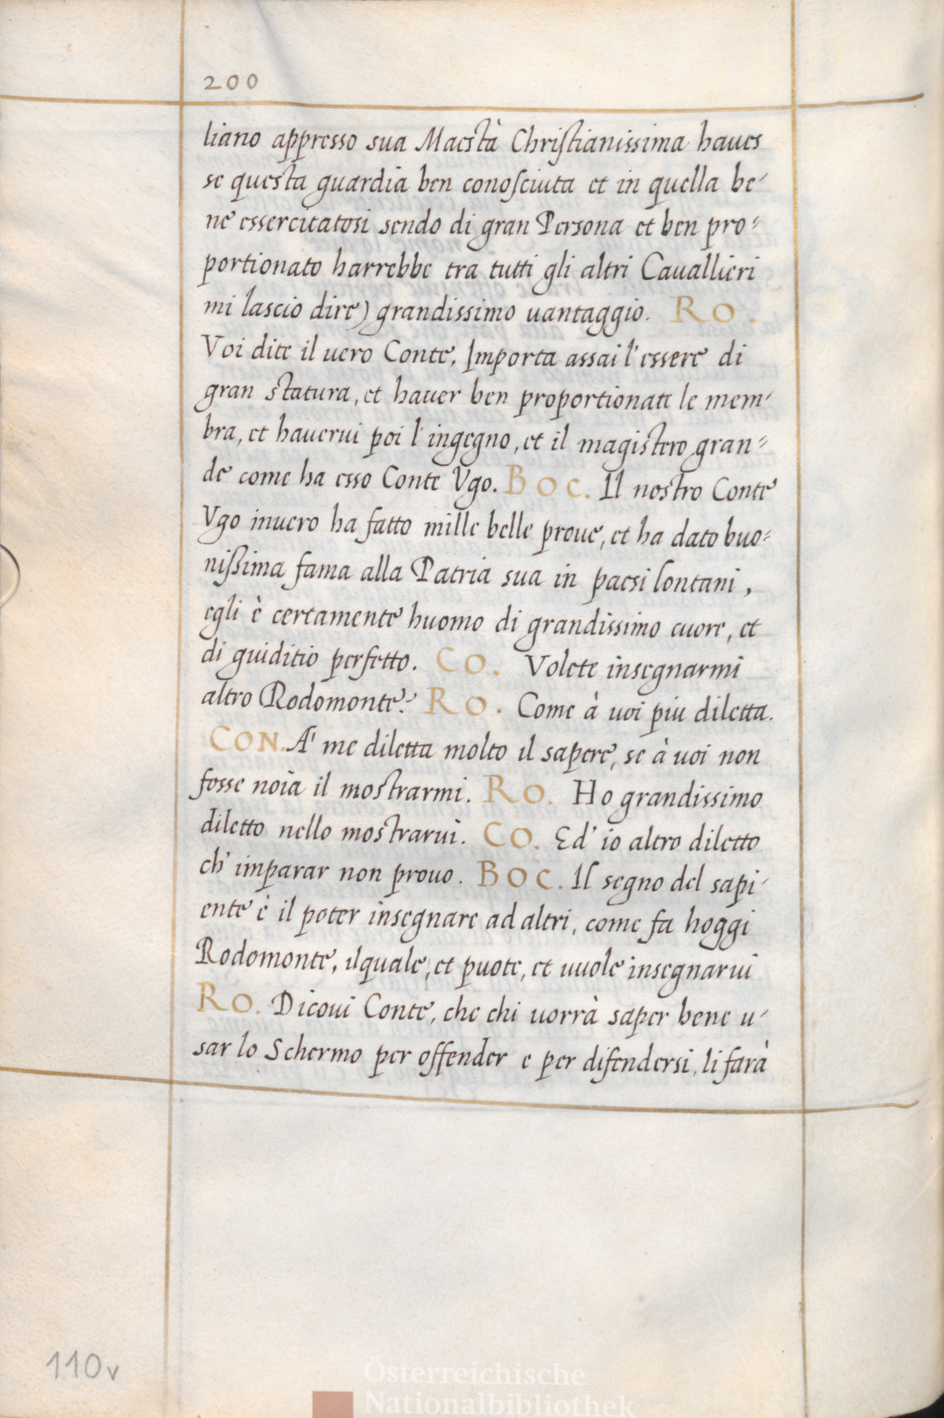 200
liano appresso sua Maestà Christianissima haues
se questa guardia ben conosciuta et in quella be-
ne essercitatosi sendo di gran Persona et ben pro-
portionato harrebbe tra tutti gli altri Cauallieri
mi lascio dire) grandissimo uantaggio. RO.
Voi dite il uero Conte, Importa assai l'essere di
gran statura, et hauer ben proportionate le mem-
bra, et hauerui poi l'ingegno, et il magistero gran-
de come ha esso Conte Vgo. BOC. Il nostro Conte
Vgo inuero ha fatto mille belle proue, et ha dato buo-
nissima fama alla Patria sua in paesi lontani,
egli è certamente huomo di grandissimo cuore, et
di guiditio perfetto. CO. Volete insegnarmi
altro Rodomonte? RO. Come à uoi piu diletta.
CON. A' me diletta molto il sapere, se à uoi non
fosse noia il mostrarmi. RO. Ho grandissimo
diletto nello mostrarui. CO. Ed' io altro diletto
ch' imparar non prouo. BOC. Il segno del sapi-
ente è il poter insegnare ad altri, come fa hoggi
Rodomonte, ilquale, et puote, et uuole insegnarui
RO. Dicoui Conte, che chi uorrà saper bene u-
sar lo Schermo per offender e per difendersi, li farà
110v
Österreichische
Nationalbibliothek